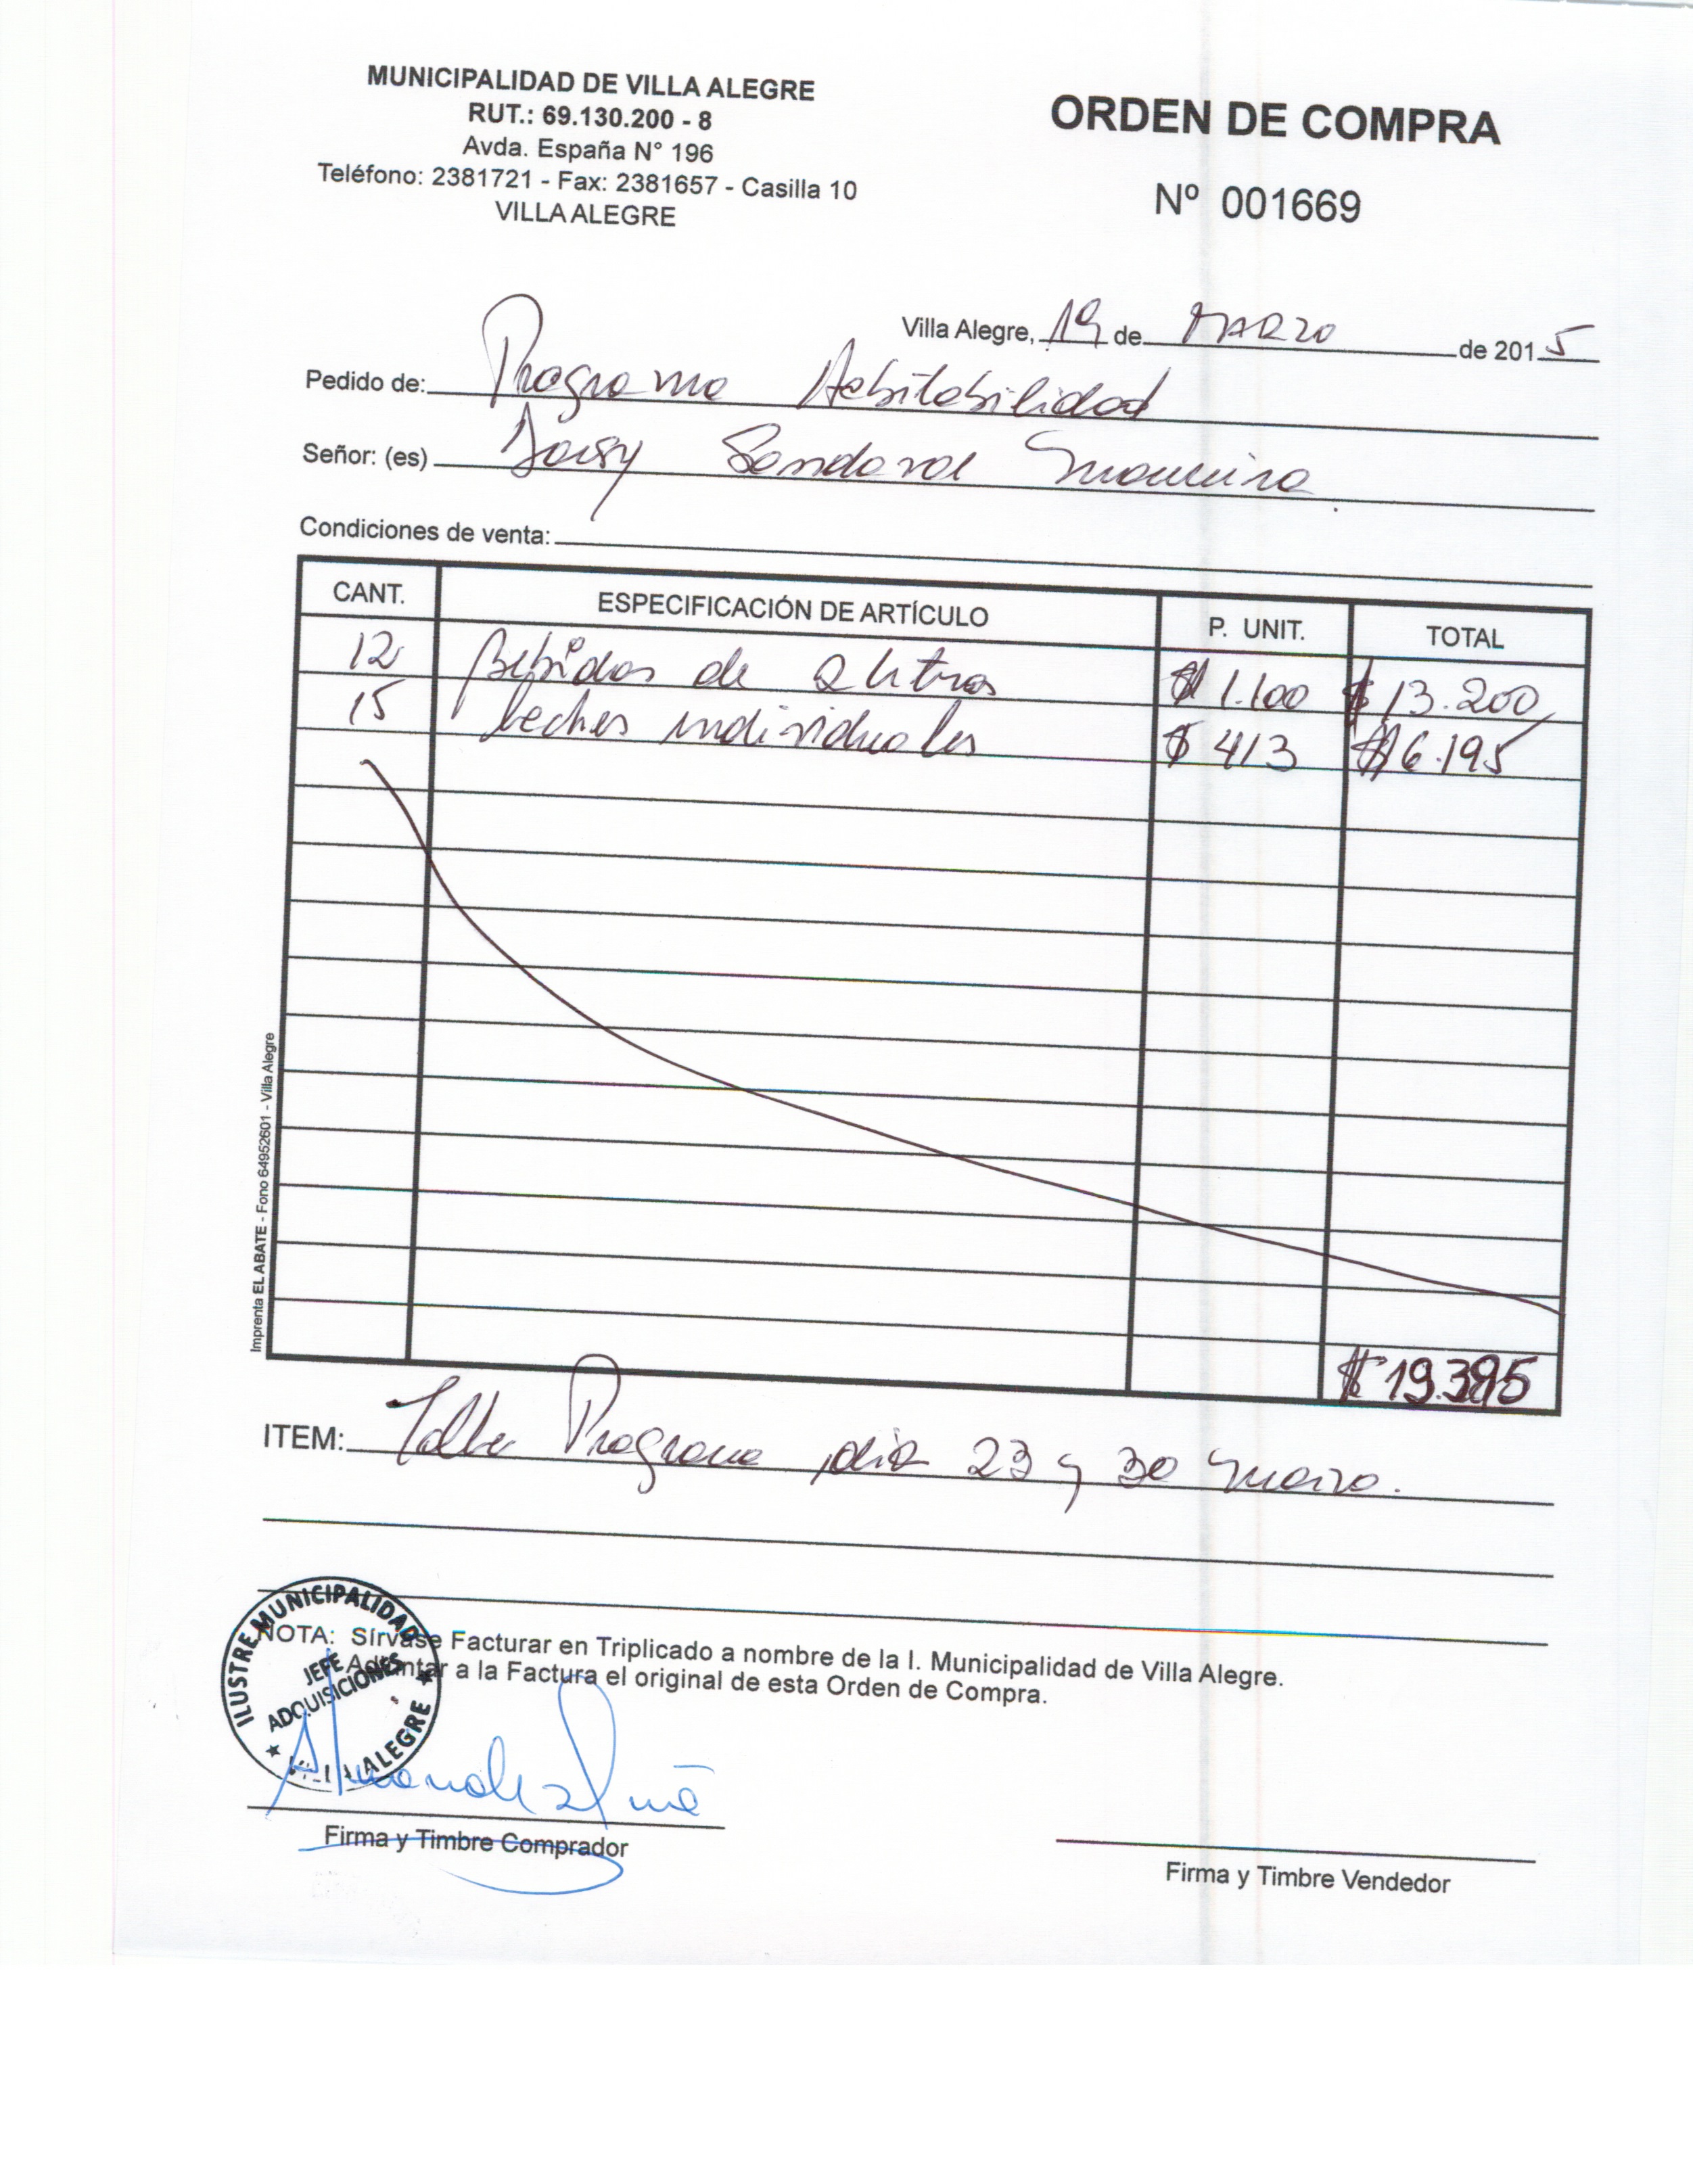 MUNICIPALIDAD DE VILLA ALEGRE
RUT.: 69.130.200 - 8
Avda. España N° 196
Teléfono: 2381721 - Fax: 2381657 - Casilla 10
VILLA ALEGRE
ORDEN DE COMPRA
Nº 001669
Villa Alegre, 19 de MARZO de 2015
Pedido de: Programa Habitabilidad
Señor: (es) Daisy Sandoval
Condiciones de venta:
CANT. ESPECIFICACIÓN DE ARTÍCULO P. UNIT. TOTAL
12 Bebidas de 2 litros $ 1.100 $ 13.200
15 leches individuales $ 413 $ 6.195
$ 19.395
ITEM: Taller Programa día 23 y 30 marzo.
NOTA: Sírvase Facturar en Triplicado a nombre de la I. Municipalidad de Villa Alegre.
Adjuntar a la Factura el original de esta Orden de Compra.
ILUSTRE MUNICIPALIDAD
JEFE
ADQUISICIONES
VILLA ALEGRE
Firma y Timbre Comprador
Firma y Timbre Vendedor
Imprenta EL ABATE - Fono 64952601 - Villa Alegre